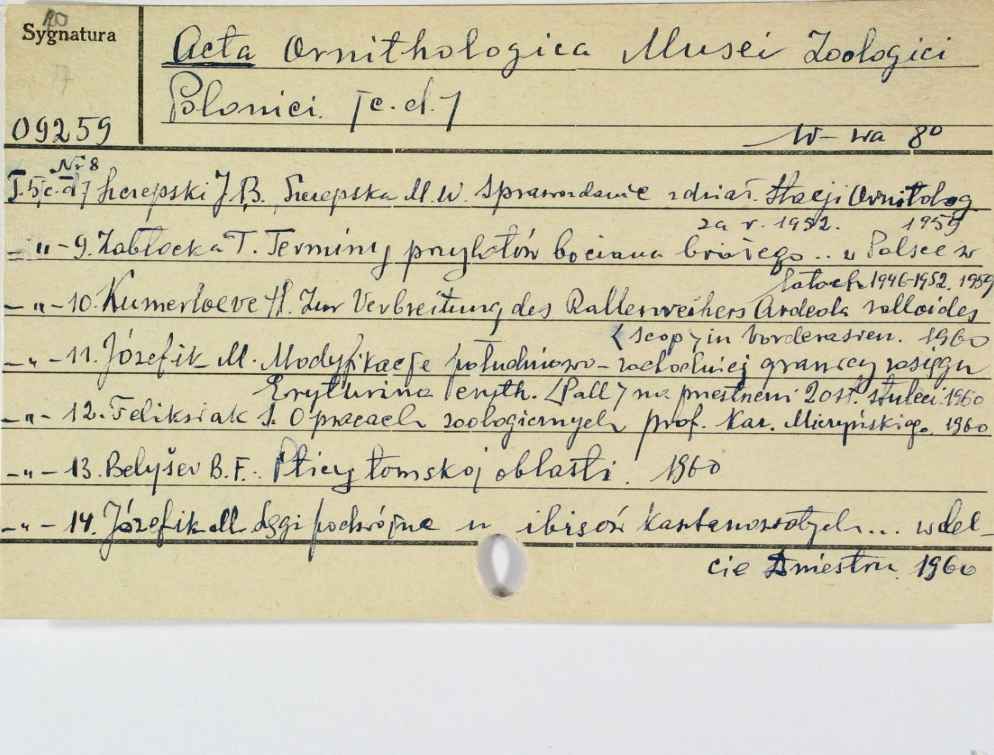 Sygnatura
Acta Ornithologica Musei Zoologici
Polonici. [c.d.]
09259
W-wa 8°
Nr 8
T.5[c.d.] Szczepski J.B. Szczepska M.W. Sprawozdanie z dział. Stacji Ornitolog
za r. 1952. 1959
-"-9. Zabłocka T. Terminy przylotów bociana białego.. w Polsce w
latach 1946-1952. 1959
-"-10. Kumerloeve H. Zur Verbreitung des Rallenreihers Ardeola ralloides
<Scop> in Vorderasien. 1960
-"-11. Józefik M. Modyfikacje południowo-zachodniej granicy zasięgu
Erythrina eryth. <Pall> na przestrzeni 20 ost. stuleci. 1960
-"-12. Feliksiak S. O pracach zoologicznych prof. Kaz. Miczyńskiego. 1960
-"-13. Belyšev B.F. Pticy tomskoj oblasti. 1960
-"-14. Józefik M. Lęgi podwójne u ibisów kasztanowatych... w del-
cie Dniestru. 1960